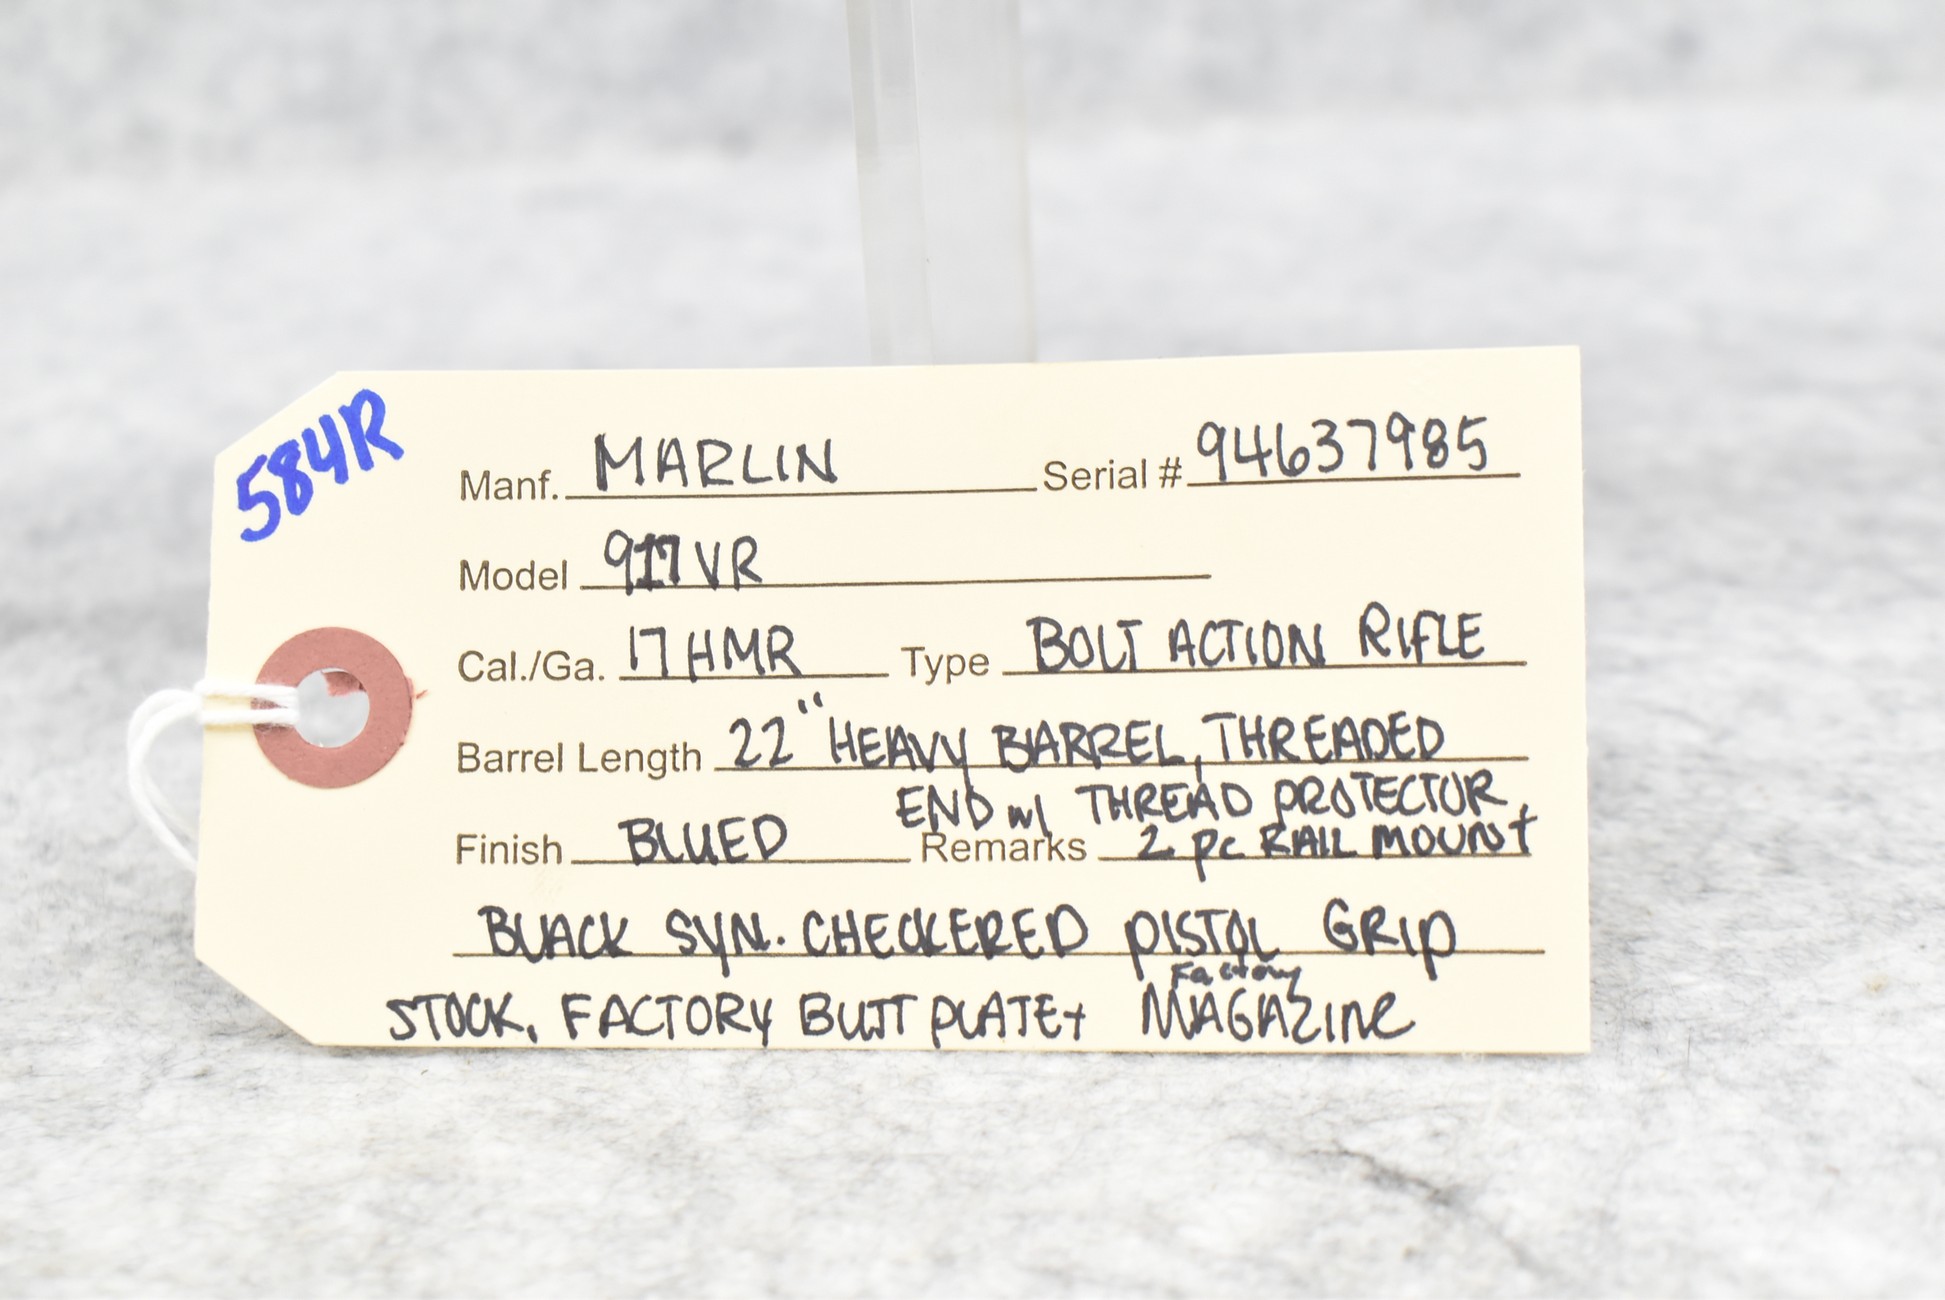 584R
Manf. MARLIN Serial # 94637985
Model 917VR
Cal./Ga. 17 HMR Type BOLT ACTION RIFLE
Barrel Length 22" HEAVY BARREL, THREADED
END w/ THREAD PROTECTOR,
Finish BLUED Remarks 2 pc RAIL MOUNT
BLACK SYN. CHECKERED PISTOL GRIP
STOCK, FACTORY BUTT PLATE + Factory MAGAZINE